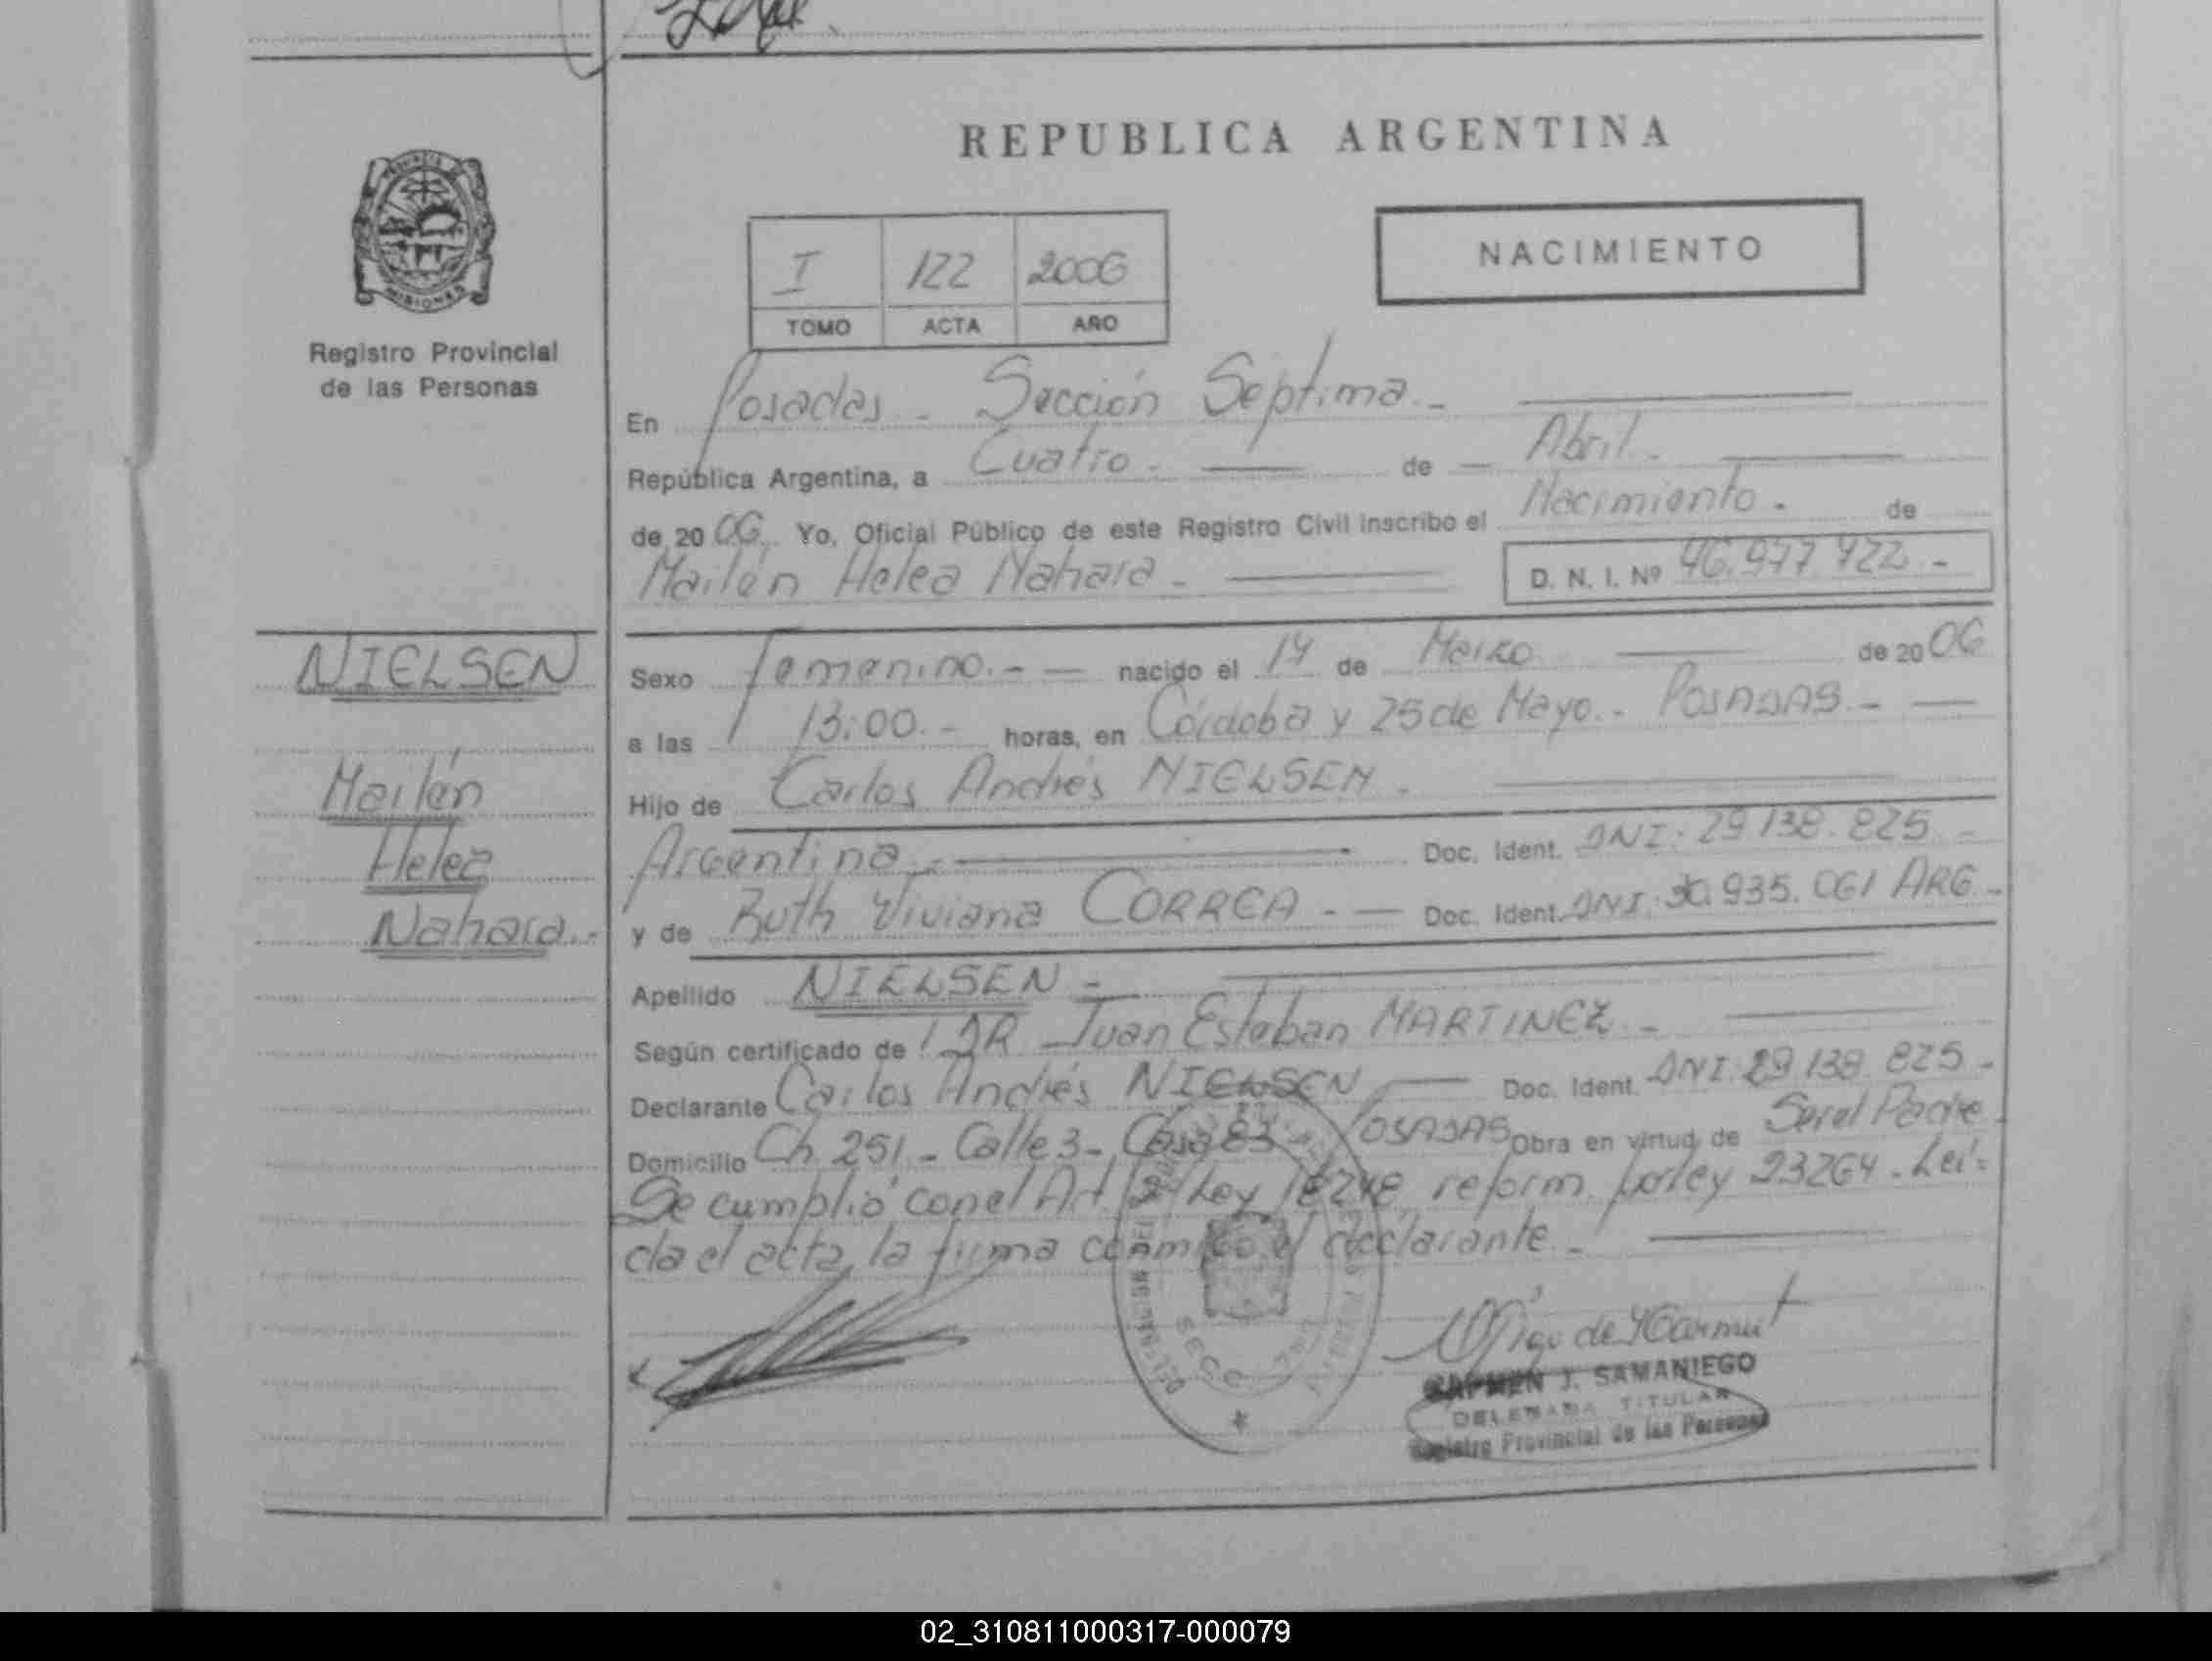 REPUBLICA ARGENTINA
PROVINCIA
MISIONES
Registro Provincial
de las Personas
I 122 2006
TOMO ACTA AÑO
NACIMIENTO
En Posadas - Sección Septima.-
República Argentina, a Cuatro.- de Abril.-
de 2006. Yo, Oficial Público de este Registro Civil inscribo el Nacimiento. de
Mailén Helea Nahara.- D. N. I. Nº 46.977.722.-
NIELSEN
Mailén
Helea
Nahara.-
Sexo femenino.- nacido el 14 de Marzo de 2006
a las 13:00.- horas, en Córdoba y 25 de Mayo.- POSADAS.-
Hijo de Carlos Andrés NIELSEN.
Argentina.- Doc. Ident. DNI. 29.138.825.-
y de Ruth Viviana CORREA.- Doc. Ident. DNI. 30.935.061 ARG.-
Apellido NIELSEN.-
Según certificado de DR Juan Esteban MARTINEZ.-
Declarante Carlos Andrés NIELSEN Doc. Ident. DNI. 29.138.825.-
Domicilio Ch. 251.- Calle 3- Casa 83- POSADAS Obra en virtud de Ser el Padre.
Se cumplió con el Art. 2 Ley 18248 reform. por ley 23264. Leí=
da el acta, la firma conmigo el declarante.-
CARMEN J. SAMANIEGO
DELEGADA TITULAR
Registro Provincial de las Personas
02_310811000317-000079